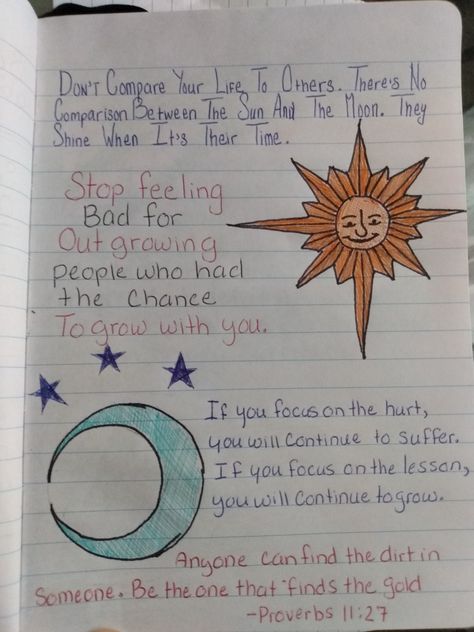 Don't Compare Your Life To Others. There's No
Comparison Between The Sun And The Moon. They
Shine When It's Their Time.
Stop feeling
Bad for
Out growing
people who had
the chance
To grow with you.
If you focus on the hurt,
you will continue to suffer.
If you focus on the lesson,
you will continue to grow.
Anyone can find the dirt in
Someone. Be the one that finds the gold
-Proverbs 11:27